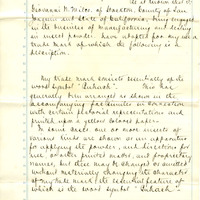 Be it known that I,
Giovanni N. Milco, of Stockton, County of San
Joaquin and State of California, being engaged
in the business of manufacturing and selling
an insect powder, have adopted for my use a
trade mark of which the following is a
description.
My trade mark consists essentially of the
word symbol "Buhach". This has
generally been arranged as shown in the
accompanying fac-simile in connection
with certain pictorial representations and
printed upon a yellow colored label.
In some cases one or more insects of
various kinds are shown or an apparatus
for applying the powder, and directions for
use, or other printed matter, and proprietary
names, but these may be changed or omitted
without materially changing the character
of my trade mark the essential feature of
which is the word symbol "Buhach".